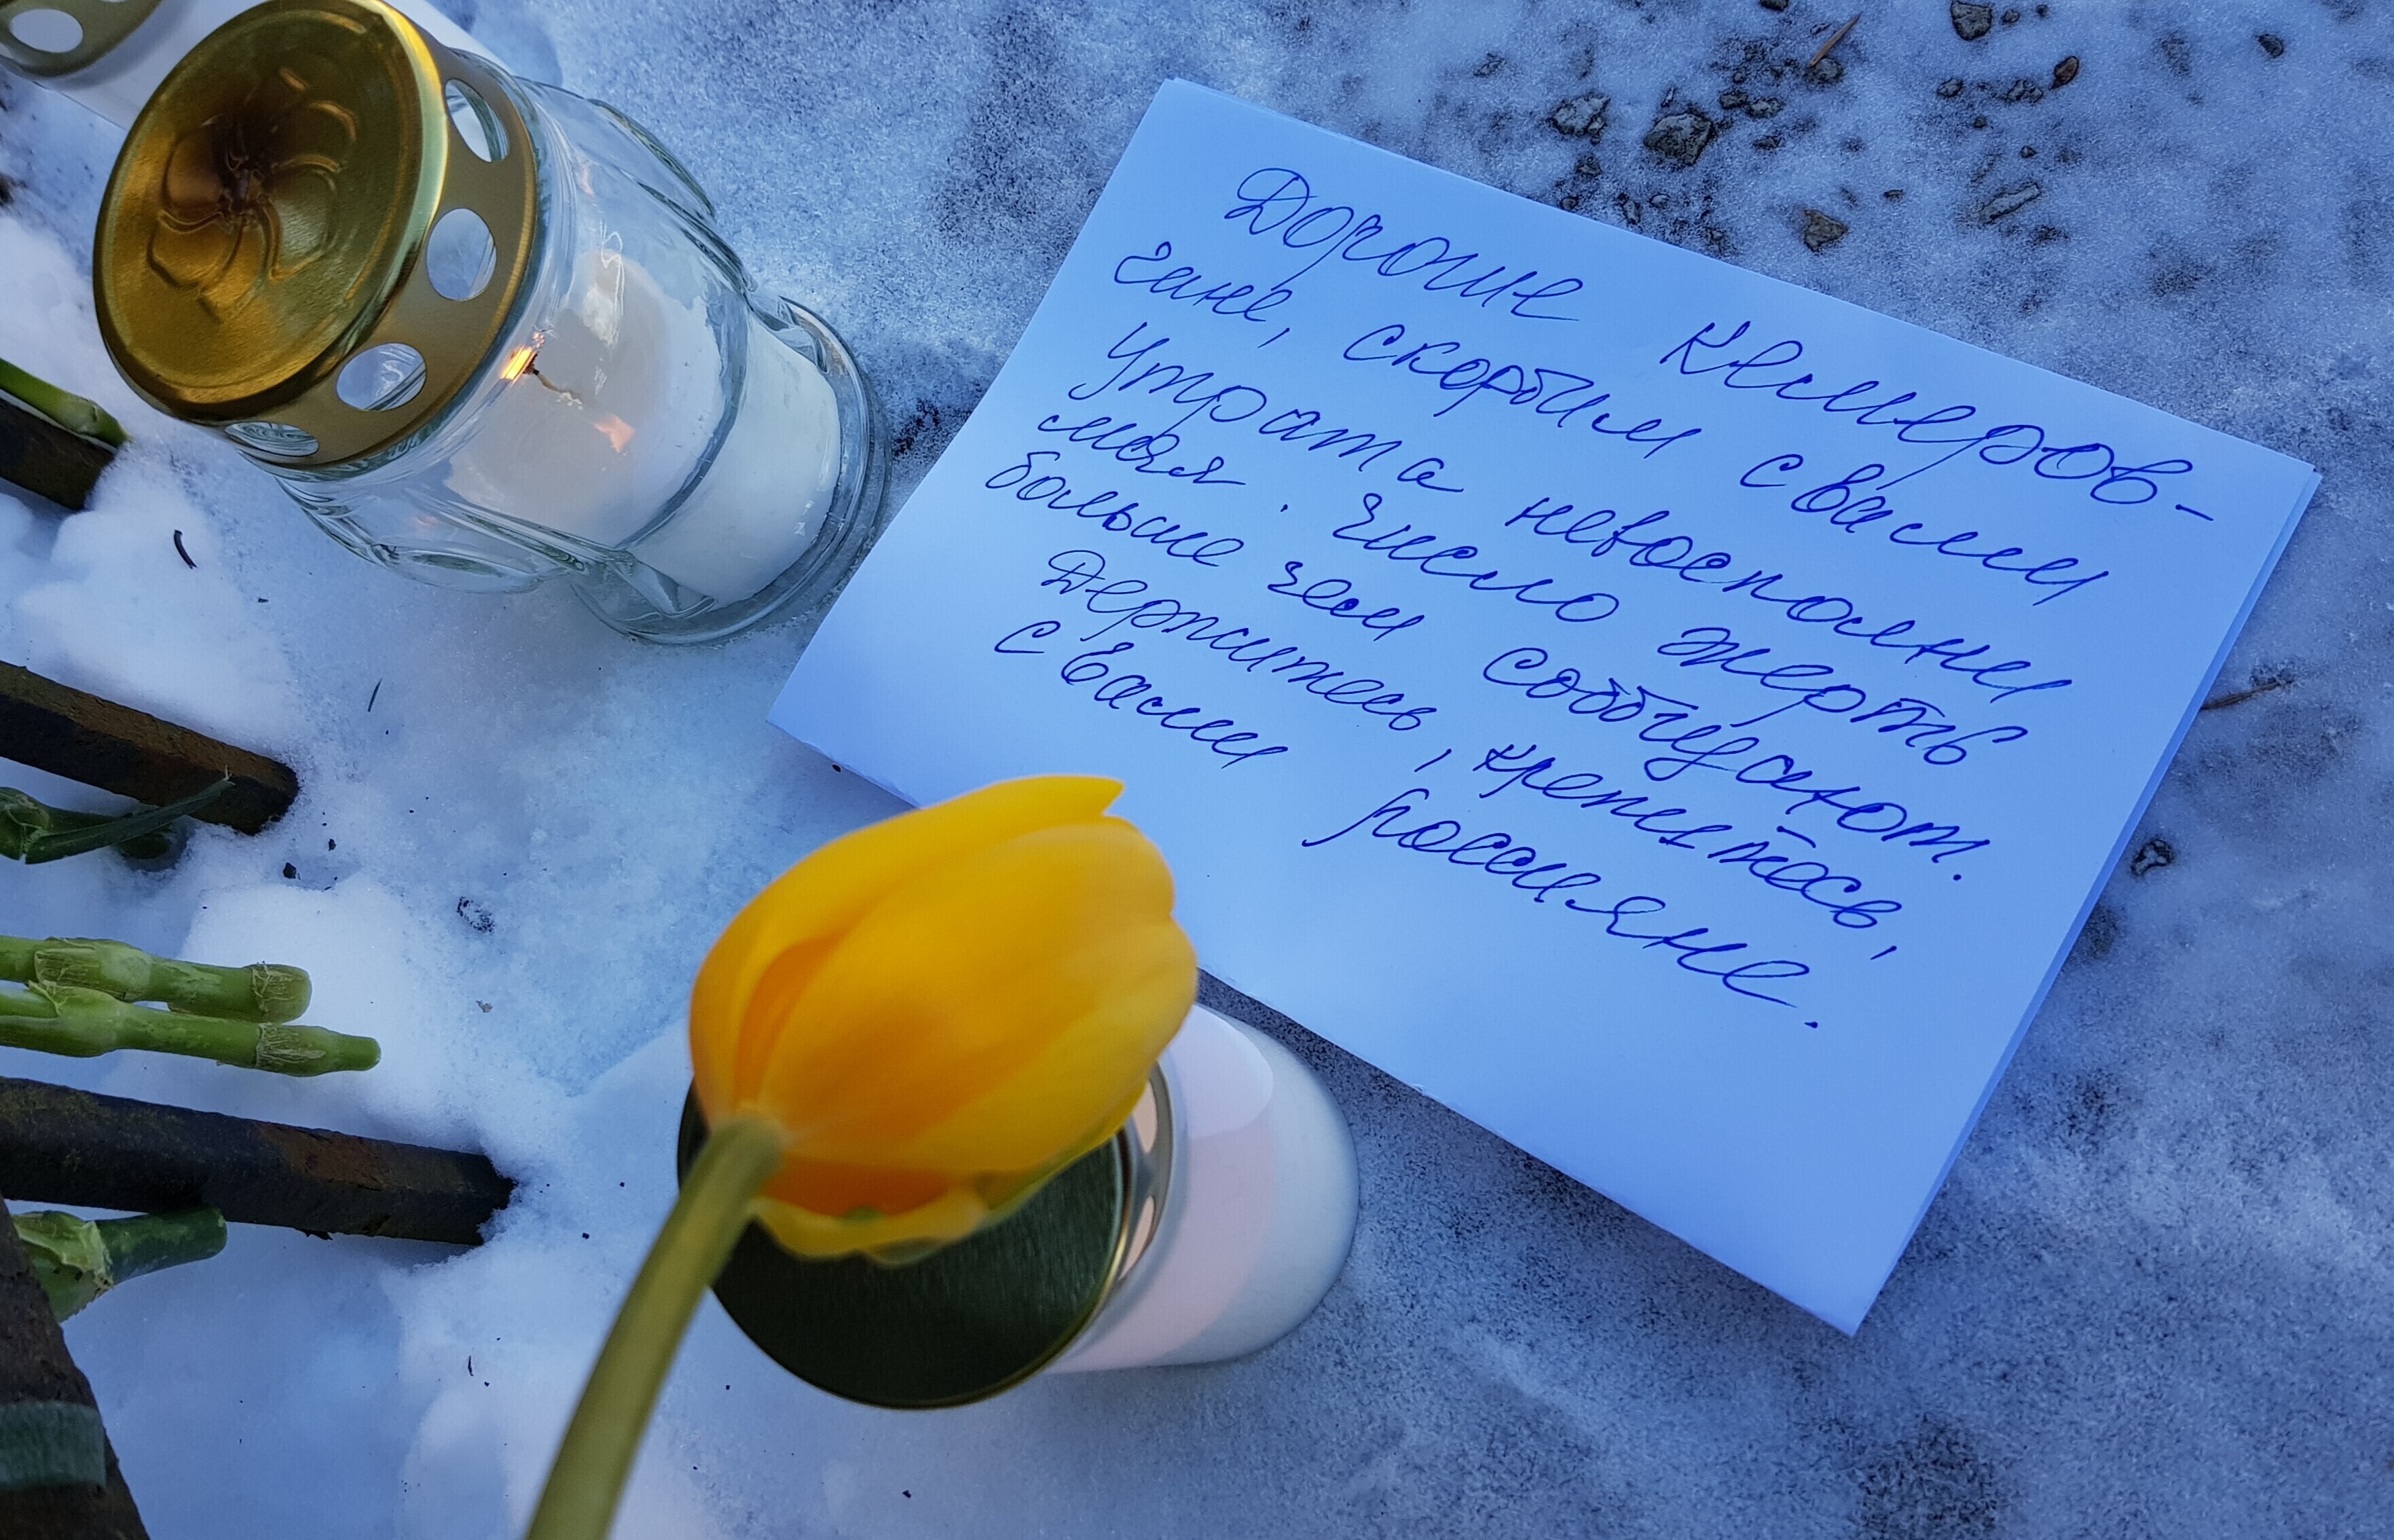 Дорогие Кемеров-
чане, скорбим с вами
Утрата невосполни
мая. Число жертв
больше чем сообщают.
Держитесь, крепитесь,
с вами россияне.